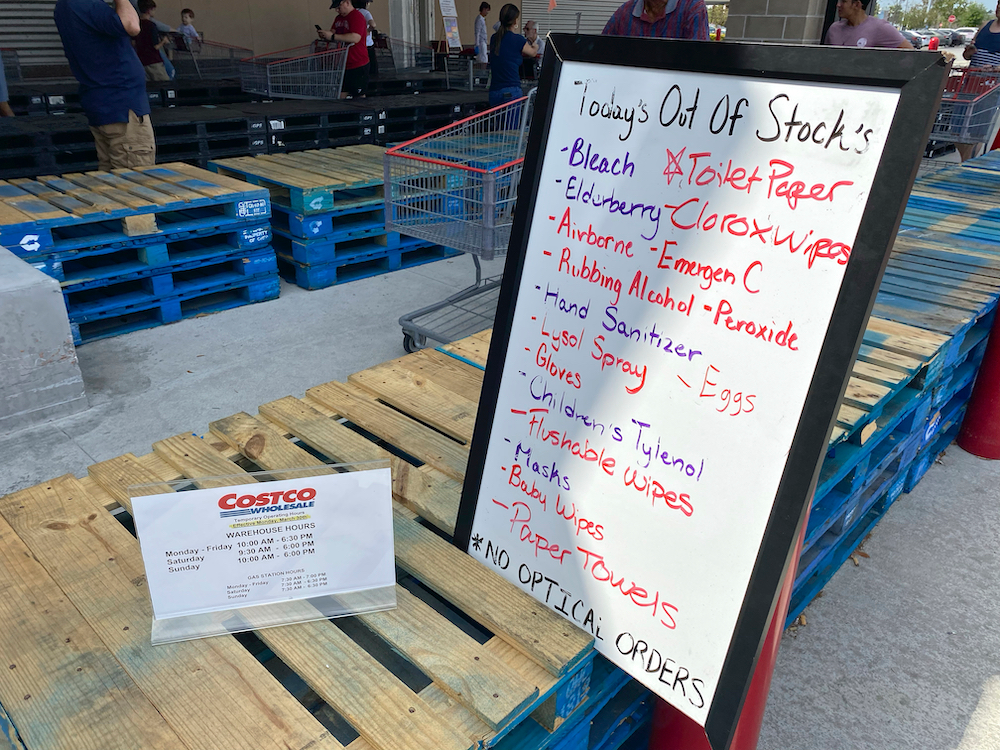 Today's Out Of Stock's
- Bleach ☆Toilet Paper
- Eldurberry - Clorox Wipes
- Airborne - Emergen C
- Rubbing Alcohol - Peroxide
- Hand Sanitizer
- Lysol Spray - Eggs
- Gloves
- Children's Tylenol
- Flushable Wipes
- Masks
- Baby Wipes
- Paper Towels
*NO OPTICAL ORDERS
COSTCO
WHOLESALE
Temporary Operating Hours
Effective Monday, March 30th
WAREHOUSE HOURS
Monday - Friday 10:00 AM - 6:30 PM
Saturday 9:30 AM - 6:00 PM
Sunday 10:00 AM - 6:00 PM
GAS STATION HOURS
Monday - Friday 7:30 AM - 7:00 PM
Saturday 7:30 AM - 6:30 PM
Sunday 7:30 AM - 6:00 PM